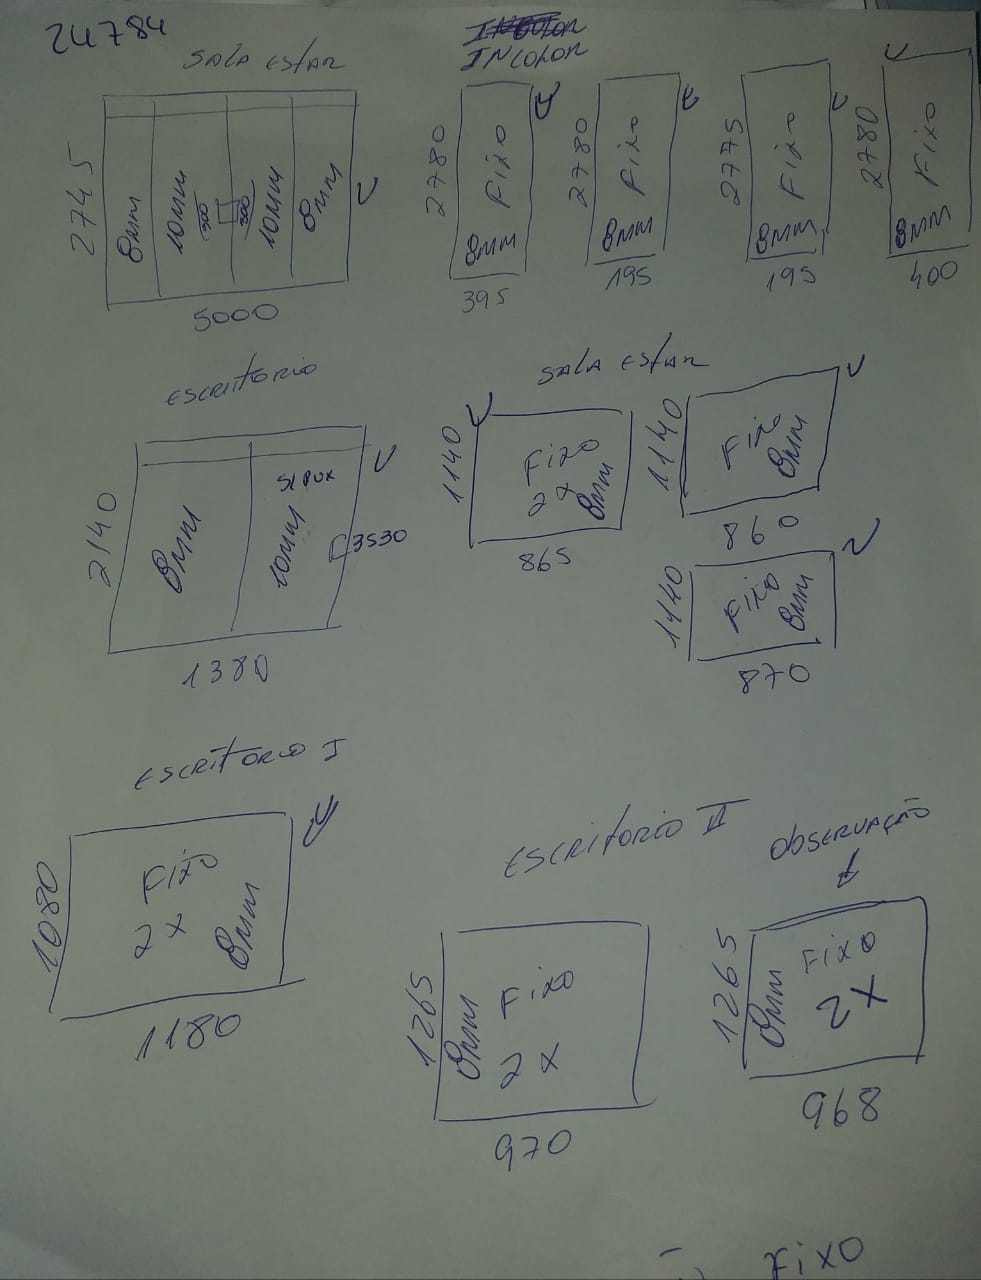 24784
SALA ESTAR
INCOLOR
INCOLOR
2745
8mm
10mm
300
300
10mm
8mm
5000
2780
Fixo
8mm
395
2780
Fixo
8mm
195
2775
Fixo
8mm
195
2780
Fixo
8mm
400
ESCRITORIO
2140
8mm
S/PUX
10mm
3530
1380
SALA ESTAR
1140
Fixo
2x
8mm
865
1140
Fixo
8mm
860
1440
Fixo
8mm
870
ESCRITORIO I
1080
Fixo
2x
8mm
1180
ESCRITORIO II
1265
Fixo
8mm
2x
970
OBSERVAÇÃO
1265
Fixo
8mm
2x
968
Fixo